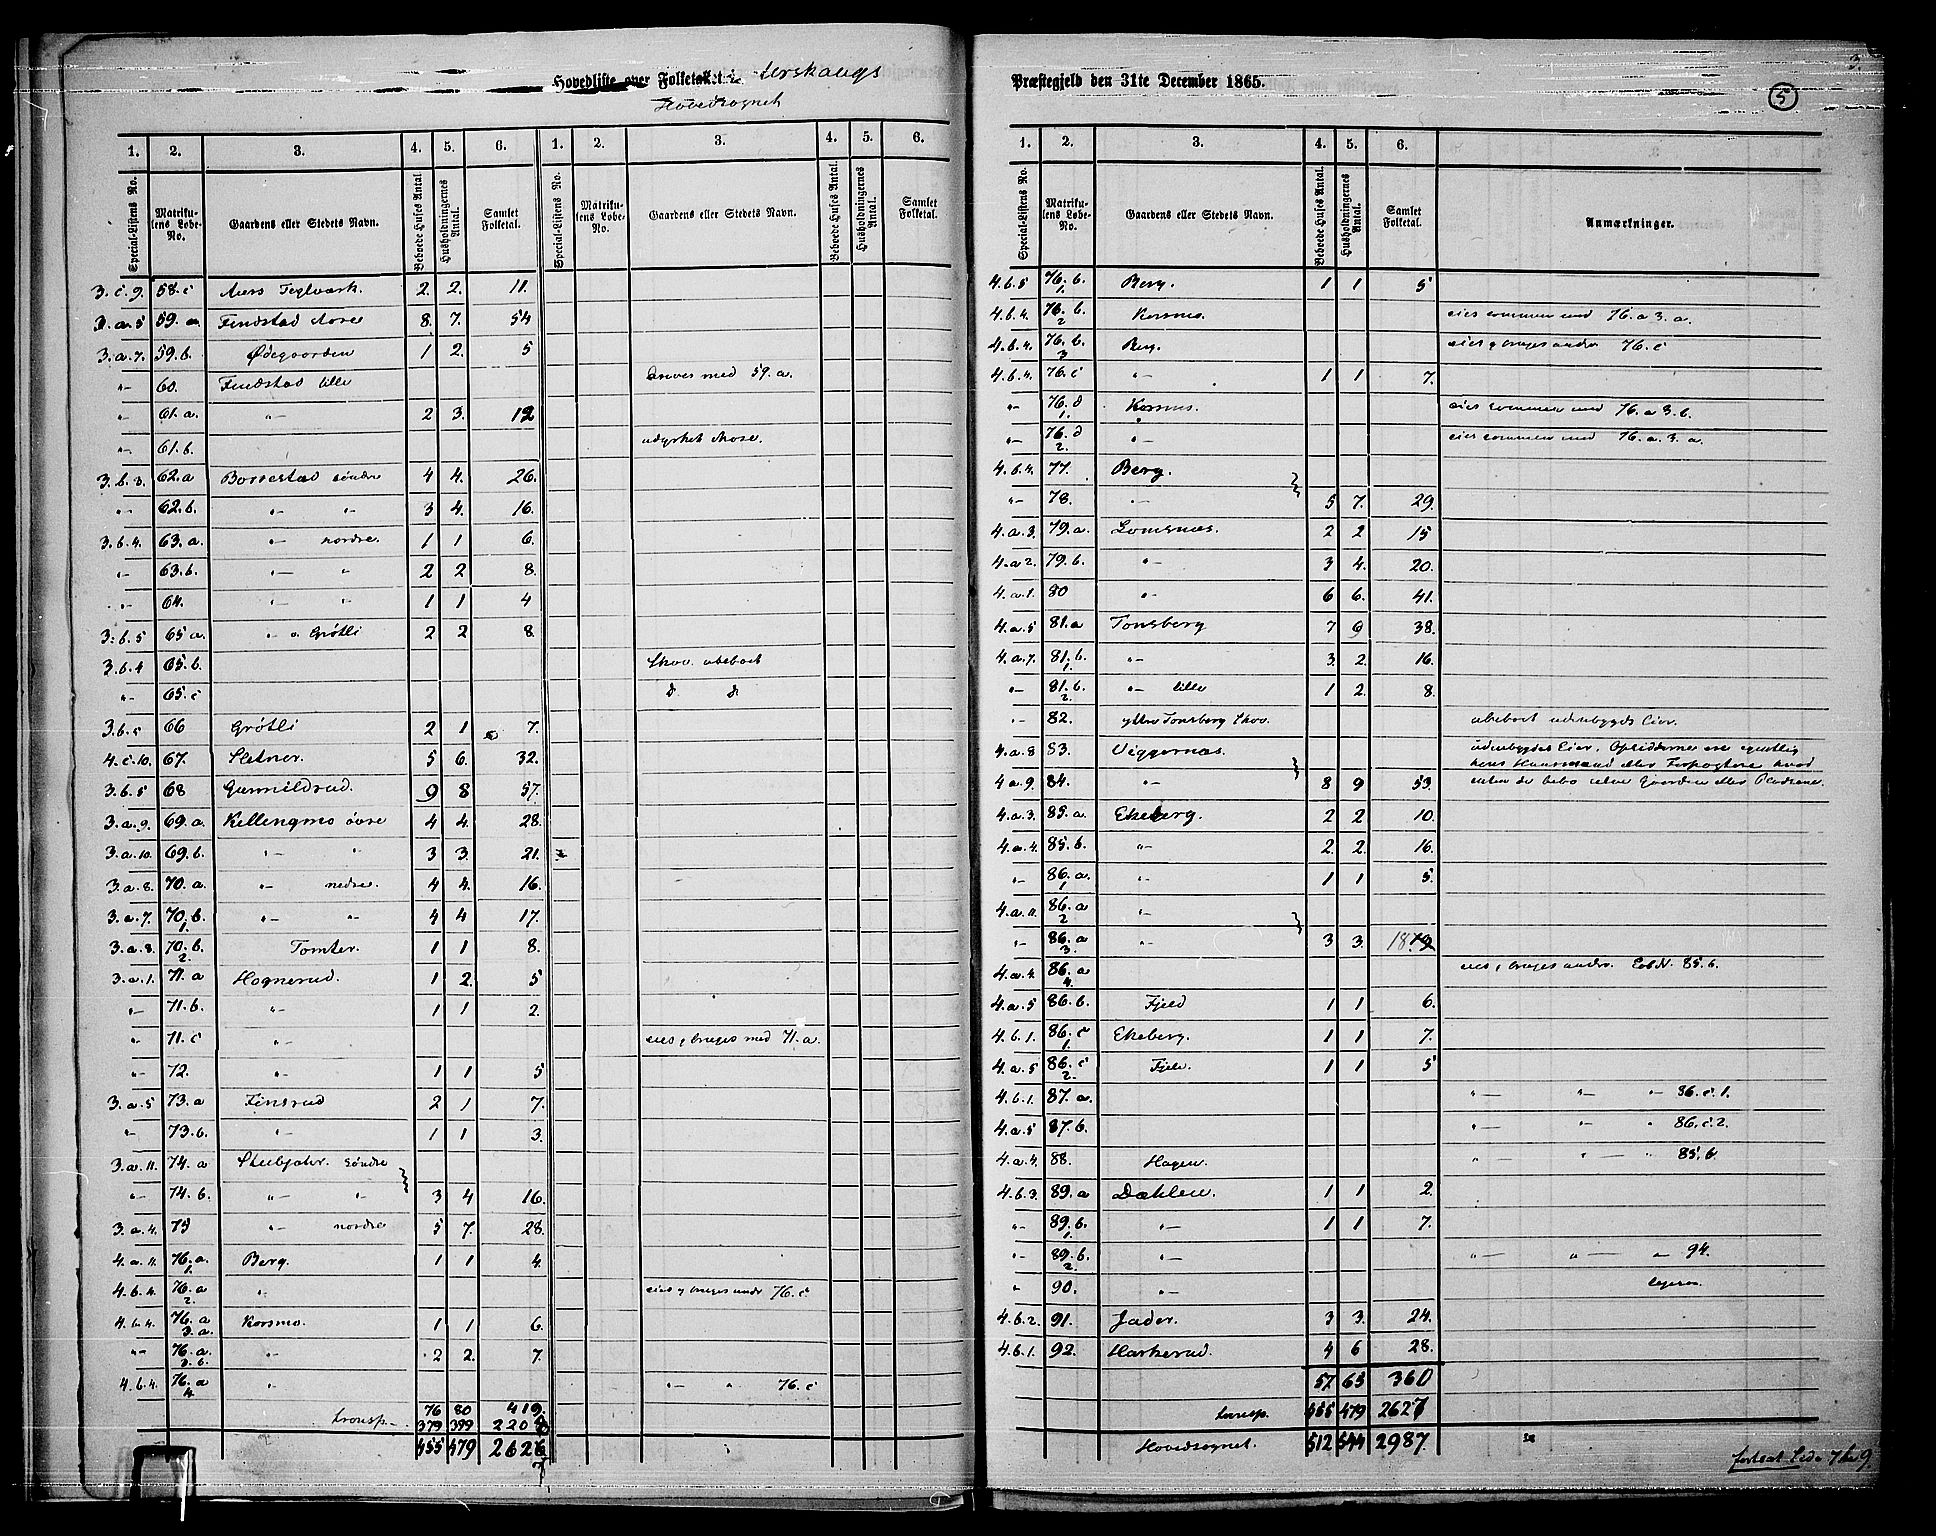 Hovedliste over Folketallet i Urskaugs Præstegjeld den 31te December 1865.
Hovedsognet
3.
5
1. 2. 3. 4. 5. 6. 1. 2. 3. 4. 5. 6.
Special-Listens No. Matrikulens Løbe-No. Gaardens eller Stedets Navn. Beboede Huses Antal. Husholdningernes Antal. Samlet Folketal. Special-Listens No. Matrikulens Løbe-No. Gaardens eller Stedets Navn. Beboede Huses Antal. Husholdningernes Antal. Samlet Folketal.
3.c.9. 58.c Aurs Teglværk. 2. 2. 11.
3.a.5 59.a. Findstad store 8. 7. 54
3.a.7. 59.b. Ødegaarden 1 2. 5
"- 60. Findstad lille drives med 59.a.
"- 61.a. "- 2 3. 12
"- 61.b. udyrket Mose.
3.b.3. 62.a Borrestad søndre 4 4. 26.
"- 62.b. "- "- 3 4. 16.
3.b.4. 63.a. "- nordre. 1 1 6.
"- 63.b. "- " 2 2 8.
"- 64. "- " 1 1 4
3.b.5 65.a. "- " Grøtli 2 2 8.
3.b.4 65.b. Skov. ubeboet
"- 65.c d d
3.b.5 66 Grøtli 2 1 7.
4.c.10. 67. Sletner. 5 6. 32.
3.b.5 68 Gunnildrud. 9 8 57.
3.a.9. 69.a. Killingmo øvre 4 4. 28.
3.a.10. 69.b. "- " 3 3. 21.
3.a.8. 70.a. "- nedre. 4 4. 16.
3.a.7. 70.b.1. "- "- 4 4 17.
3.a.8. 70.b.2 Tomter. 1 1 8.
3.a.1. 71.a Hognerud. 1 2. 5
"- 71.b. "- 1 1 2.
"- 71.c "- eies & bruges med 71.a.
"- 72. "- 1 1 5
3.a.5 73.a Finsrud 2 1 7.
"- 73.b. "- 1 1 3.
3.a.11. 74.a søndre
"- 74.b. "- "- 3 4 16.
3.a.4. 75 "- nordre 5 7. 28.
4.a.11. 76.a.1. Berg. 1 1 4.
4.b.4. 76.a2. "- eies & bruges under 76.c.
4.b.4. 76.a3.a. Korsmo. 1 1 6.
"- 76.a.3.b. "- 2 2. 7.
4.b.4. 76.a4 "- "- " 76.c
76 80 419.
transp. 379 399 2208
455 479 2626
7
1. 2. 3. 4. 5. 6.
Special-Listens No. Matrikulens Løbe-No. Gaardens eller Stedets Navn. Beboede Huses Antal. Husholdningernes Antal. Samlet Folketal. Anmærkninger.
4.b.5 76.b.1. Berg. 1 1 5
4.b.4. 76.b.2 Korsmo. eies sammen med 76.a.3.a.
4.b.4. 76.b.3 Berg. eies & bruges under 76.c
4.b.4. 76.c "- 1 1 7.
"- 76.d1. Korsmo. eies sammen med 76.a3.b.
"- 76.d2. "- eies sammen med 76.a.3.a.
4.b.4. 77. Berg.
"- 78. "- 5 7. 29.
4.a.3. 79.a. Lomsnæs. 2 2 15
4.a.2. 79.b. "- 3 4. 20.
4.a.1. 80 "- 6 6. 41.
4.a.5 81.a Tonsberg 7 9 38.
4.a.7. 81.b.1. "- 3 2. 16.
"- 81.b.2. "- lille 1 2 8.
"- 82. ytre Tonsberg Skov. ubeboet udenbygds Eier.
4.a.8 83. Viggernæs. udenbygdes Eier. Opsidderne ere egentlig
hans Huusmænd eller Forpagtere hvad
4.a.9. 84. "- 8 9 53. enten de bebo selve Gaarden eller Pladsene.
4.a.3. 85.a. Ekeberg. 2 2 10.
4.a.4. 85.b. "- 2 2. 16.
"- 86.a.1 "- 1 1 5.
4.a.11. 86.a2 "-
"- 86.a3. "- 3 3. 18
4.a.4. 86.a4. eies & bruges under LobN. 85.b.
4.a.5 86.b. Fjeld 1 1 6.
4.b.1. 86.c1. Ekeberg. 1 1 7.
4.a.5 86.c2. Fjeld. 1 1 5
4.b.1. 87.a. "- "- "- 86.c.1.
4.a.5 87.b. "- "- " 86.c.2.
4.a.4. 88. Hagen. "- "- " 85.b.
4.b.3. 89.a Dahlen. 1 1 2.
"- 89.b.1. "- 1 1 7.
"- 89.b.2. "- "- "- " 94.
" 90. "-
4.b.2. 91. Jader. 3 3. 24.
4.b.1. 92. Harkerud. 4 6 28.
57 65 360
transp. 455 479 2627
Hovedsognet. 512 544 2987
fortsat Side 7 & 9.